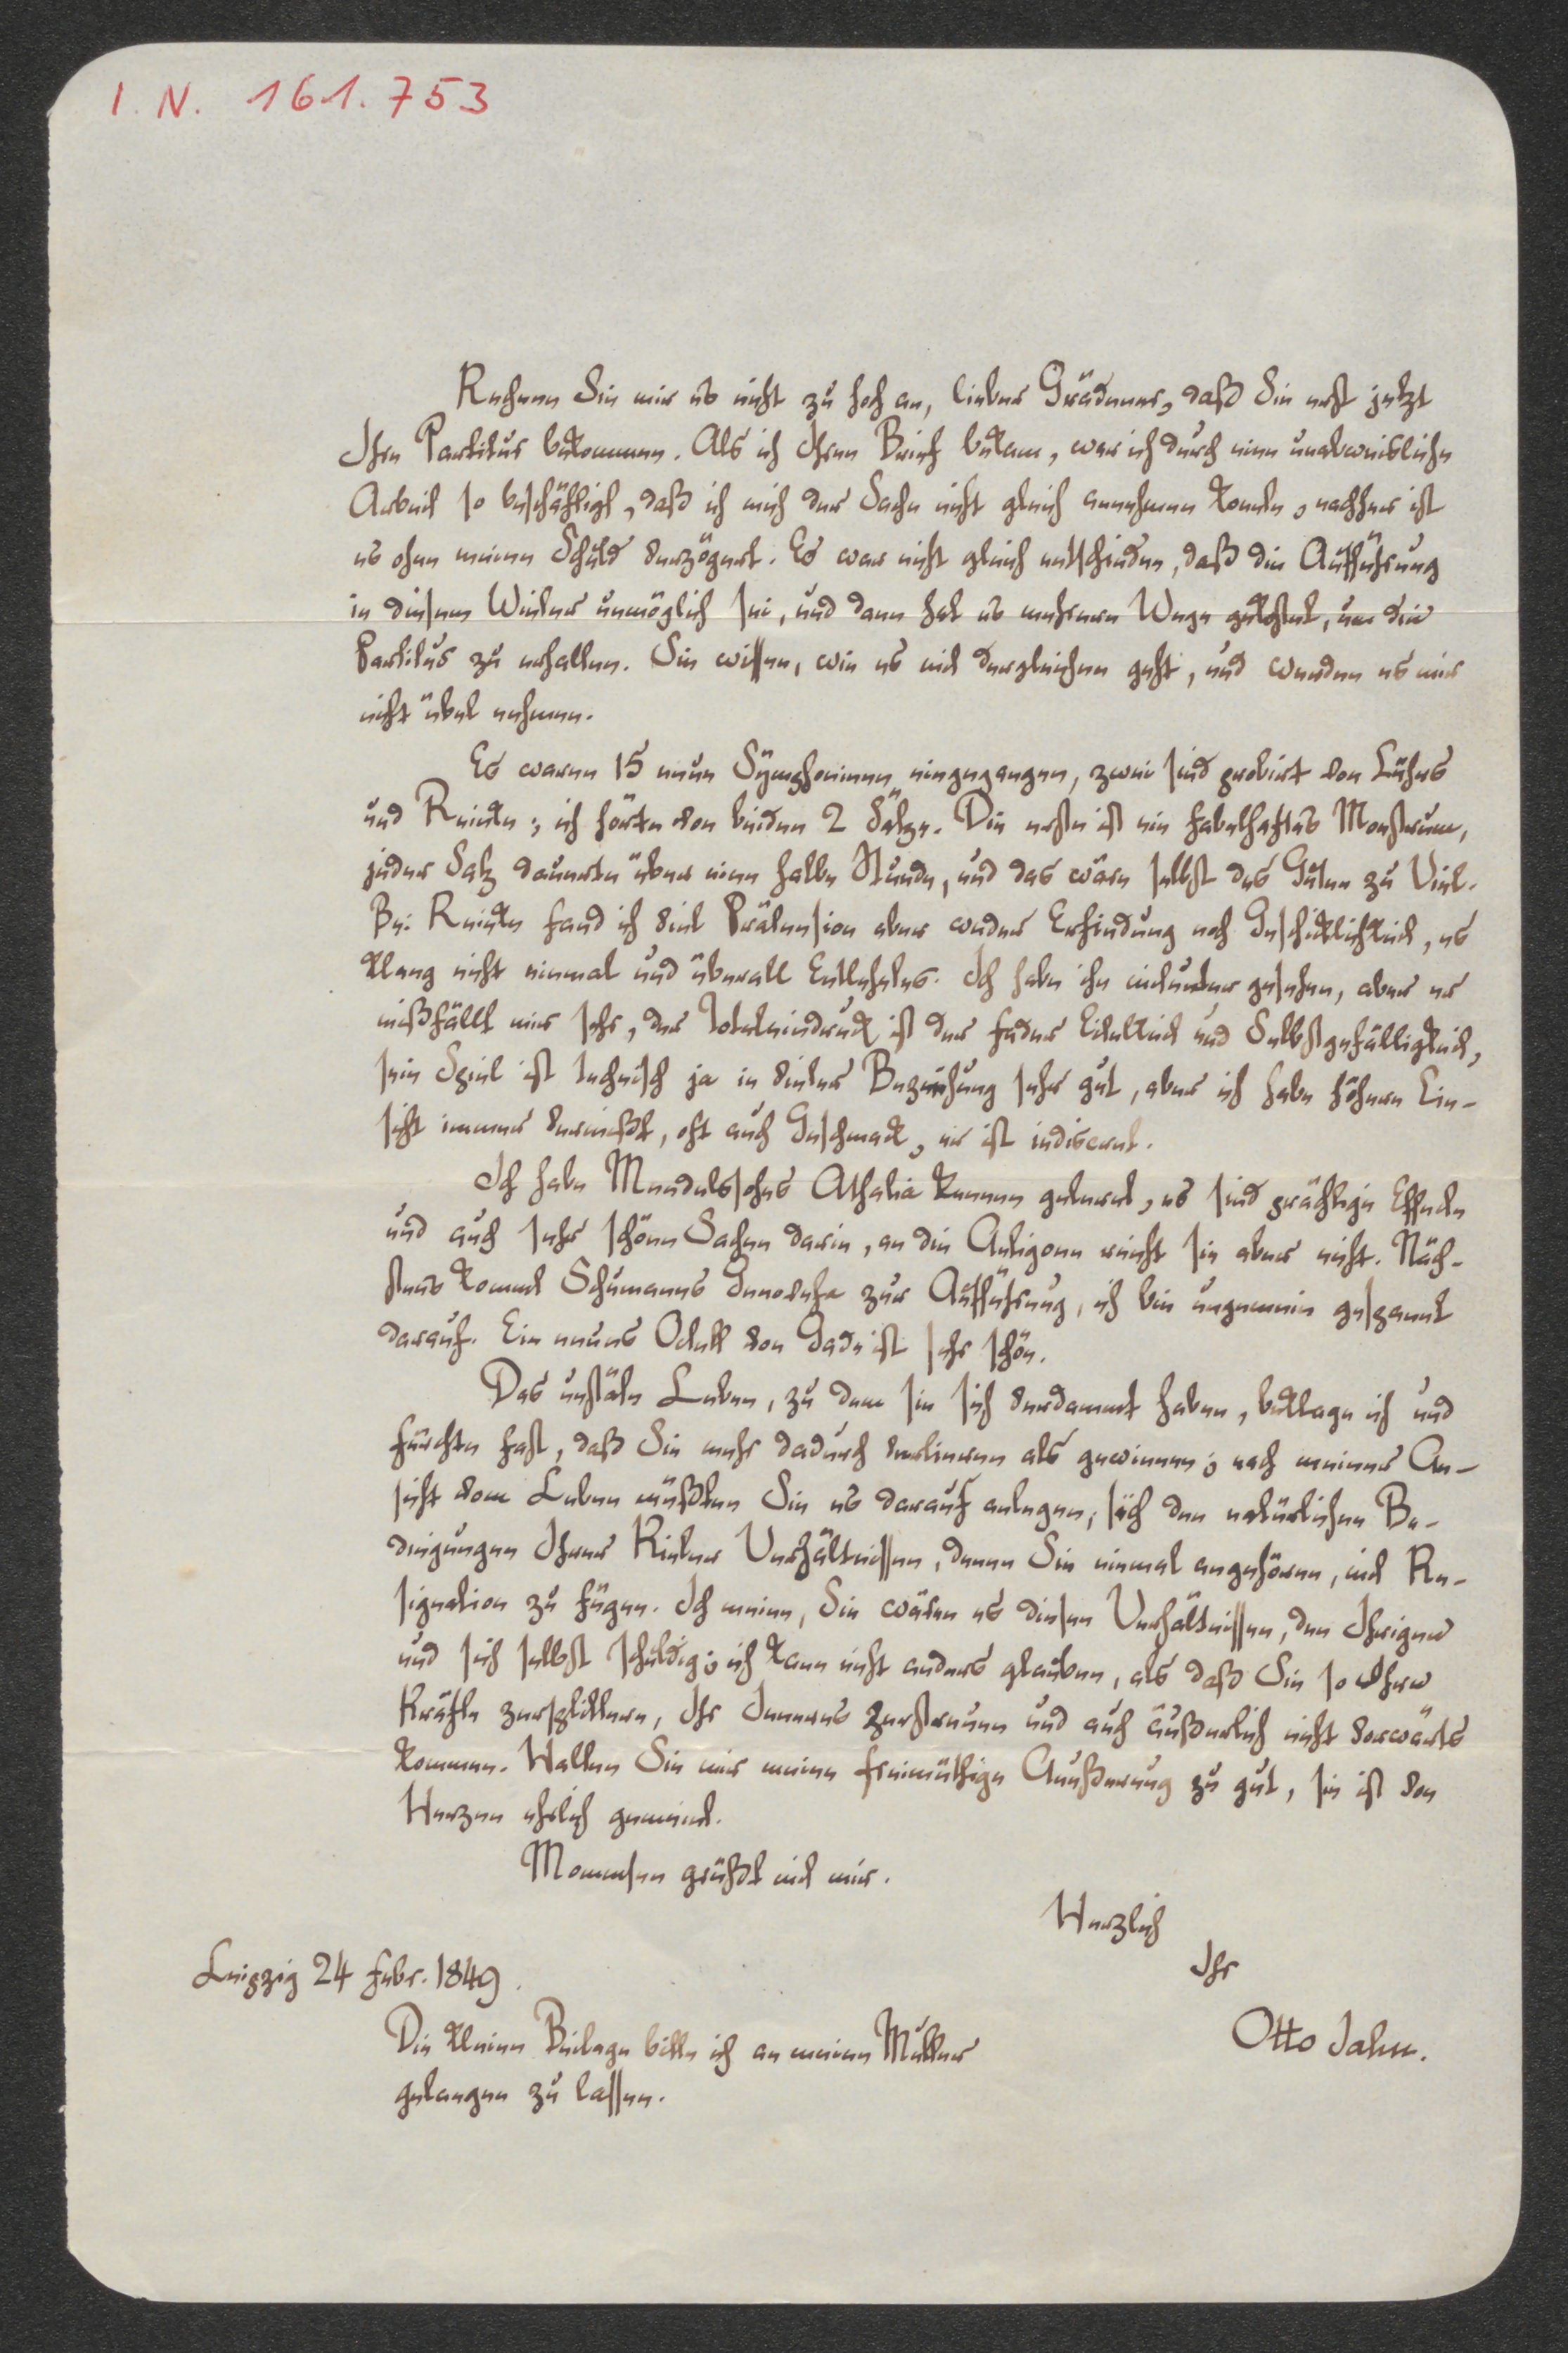 I. N. 161.753
Rechnen Sie mir es nicht zu hoch an, lieber Grädener, daß Sie erst jetzt
Ihre Partitur bekommen. Als ich Ihren Brief bekam, war ich durch eine unabweisliche
Arbeit so beschäftigt, daß ich mich der Sache nicht gleich annehmen konnte, nachher ist
es ohne meine Schuld verzögert. Es war nicht gleich entschieden, daß die Aufführung
in diesem Winter unmöglich sei, und dann hat es mehrere Wege gekostet, um die
Partitur zu erhalten. Sie wissen, wie es mit dergleichen geht, und werden es mir
nicht übel nehmen.
Es waren 15 neue Symphonieen eingegangen, zwei sind probirt von Lührs
und Reinecke; ich hörte von beiden 2 Sätze. Die erste ist ein fabelhaftes Monstrum,
jeder Satz dauerte über eine halbe Stunde, und das wäre selbst des Guten zu Viel.
Bei Reinecke fand ich viel Prätension aber weder Erfindung noch Geschicklichkeit, es
klang nicht einmal und überall Entlehntes. Ich habe ihn mitunter gesehen, aber er
mißfällt mir sehr, der Totaleindruck ist der fader Eitelkeit und Selbstgefälligkeit,
sein Spiel ist technisch ja in vieler Beziehung sehr gut, aber ich habe höhere Ein-
sicht immer vermißt, oft auch Geschmack, er ist indiscret.
Ich habe Mendelssohns Athalia kennen gelernt, es sind prächtige Effecte
und auch sehr schöne Sachen darin, an die Antigone reicht sie aber nicht. Näch-
stens kommt Schumanns Genovefa zur Aufführung, ich bin ungemein gespannt
darauf. Ein neues Octett von Gade ist sehr schön.
Das unstäte Leben, zu dem sie sich verdammt haben, beklage ich und
fürchte fast, daß Sie mehr dadurch verlieren als gewinnen; nach meiner An-
sicht vom Leben müßten Sie es darauf anlegen, sich den natürlichen Be-
dingungen Ihrer Kieler Verhältnisse, denen Sie einmal angehören, mit Re-
signation zu fügen. Ich meine, Sie wären es diesen Verhältnissen, den Ihrigen
und sich selbst schuldig; ich kann nicht anders glauben, als daß Sie so Ihre
Kräfte zersplittern, Ihr Inneres zerstreuen und auch äußerlich nicht vorwärts
kommen. Halten Sie mir meine freimüthige Äußerung zu gut, sie ist von
Herzen ehrlich gemeint.
Mommsen grüßt mit mir.
Herzlich
Ihr
Leipzig 24 Febr. 1849.
Otto Jahn.
Die kleine Beilage bitte ich an meine Mutter
gelangen zu lassen.